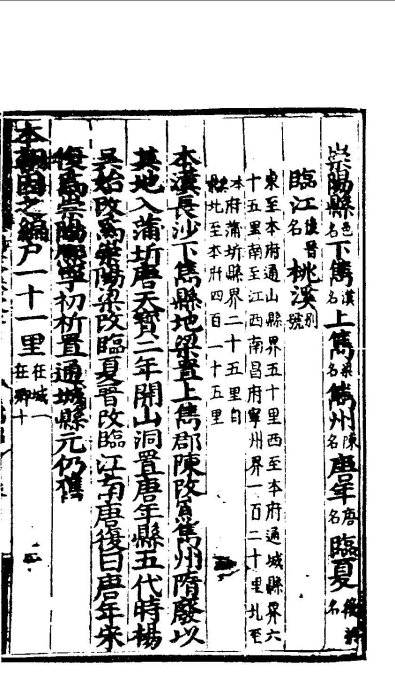 崇陽縣邑名下雋漢名上雋梁名雋州陳名唐年唐名臨夏後梁名
臨江後晉名桃溪別號
東至本府通山縣界五十里西至本府通城縣界六
十五里南至江西南昌府寧州界一百二十里北至
本府蒲圻縣界二十五里自
北至本府四百一十五里
本漢長沙下雋縣地梁置上雋郡陳改爲雋州隋廢以
其地入蒲圻唐天寶二年開山洞置唐年縣五代時楊
吳始改爲崇陽梁改臨夏晉改臨江南唐復曰唐年宋
復爲崇陽寧初析置通城縣元仍舊
本朝因之編戶一十一里在城一在鄉十